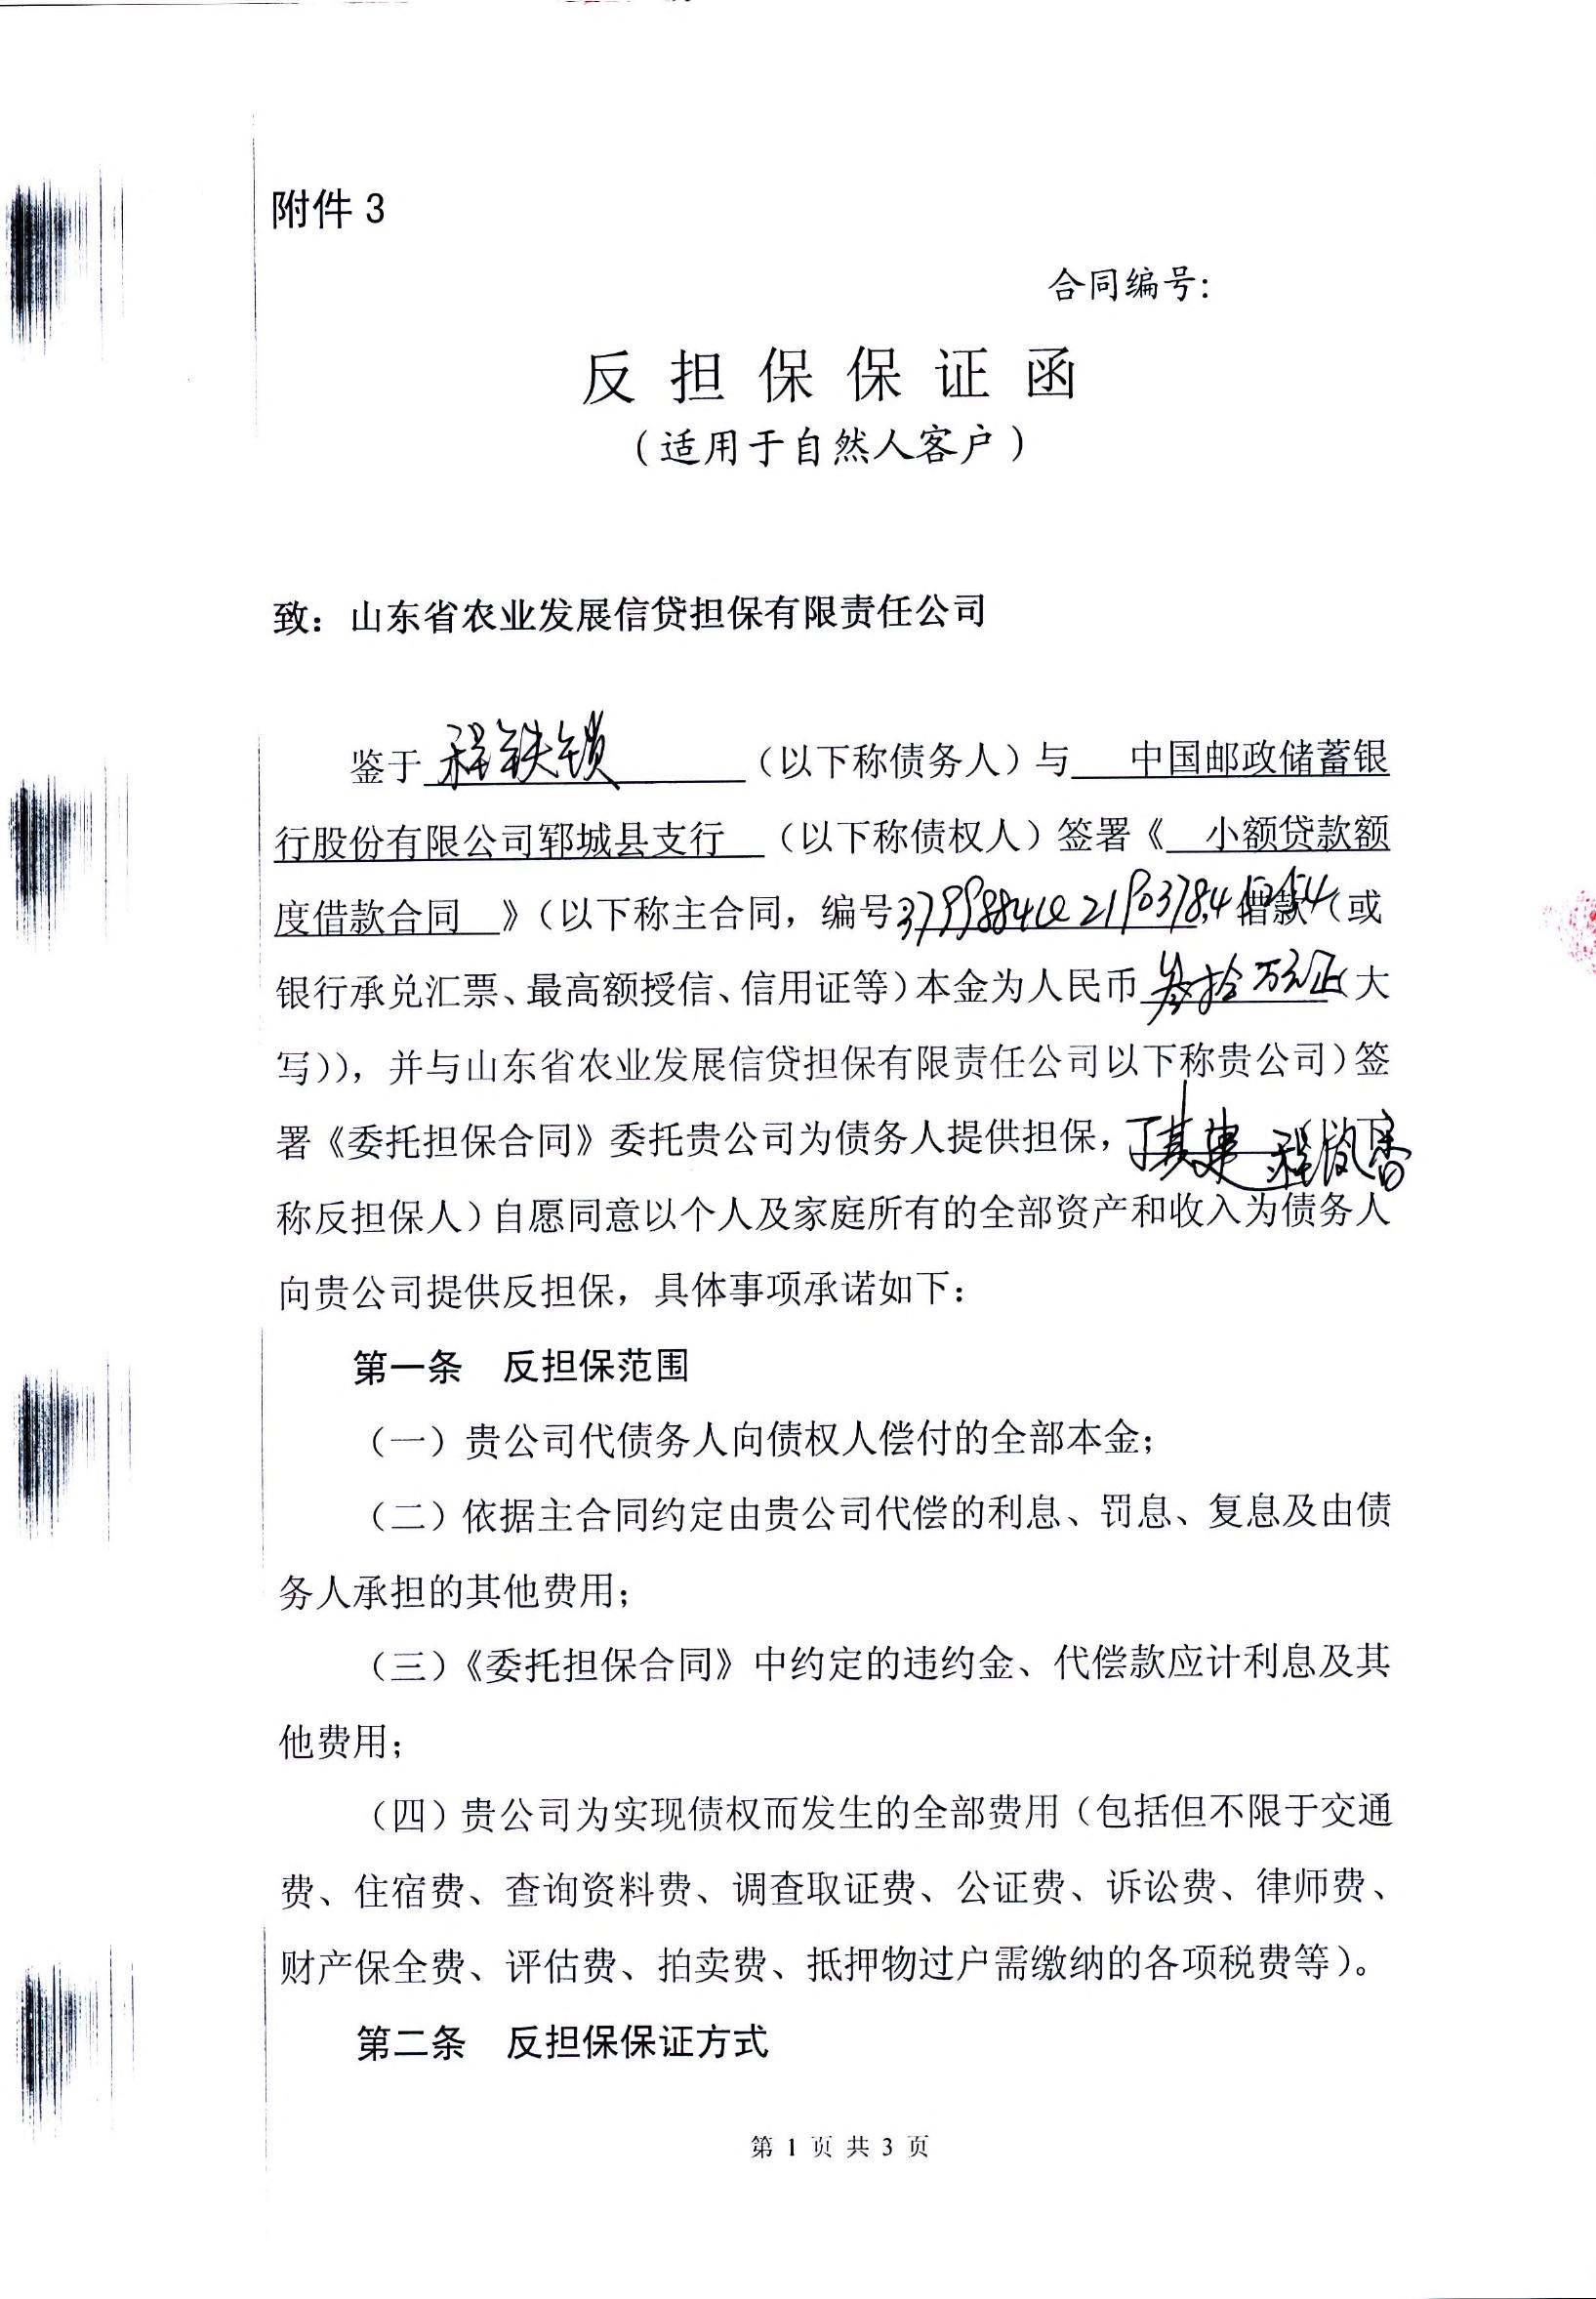 附件3
合同编号:
反担保保证函
（适用于自然人客户）
致：山东省农业发展信贷担保有限责任公司
鉴于程铁锁（以下称债务人）与 中国邮政储蓄银
行股份有限公司郓城县支行 （以下称债权人）签署《 小额贷款额
度借款合同 》（以下称主合同，编号 借款（或
银行承兑汇票、最高额授信、信用证等）本金为人民币叁拾万元正（大
写)），并与山东省农业发展信贷担保有限责任公司以下称贵公司）签
署《委托担保合同》委托贵公司为债务人提供担保， 程凤香（以下
称反担保人）自愿同意以个人及家庭所有的全部资产和收入为债务人
向贵公司提供反担保，具体事项承诺如下：
第一条 反担保范围
（一）贵公司代债务人向债权人偿付的全部本金；
（二）依据主合同约定由贵公司代偿的利息、罚息、复息及由债
务人承担的其他费用；
（三）《委托担保合同》中约定的违约金、代偿款应计利息及其
他费用；
（四）贵公司为实现债权而发生的全部费用（包括但不限于交通
费、住宿费、查询资料费、调查取证费、公证费、诉讼费、律师费、
财产保全费、评估费、拍卖费、抵押物过户需缴纳的各项税费等）。
第二条 反担保保证方式
第 1 页 共 3 页